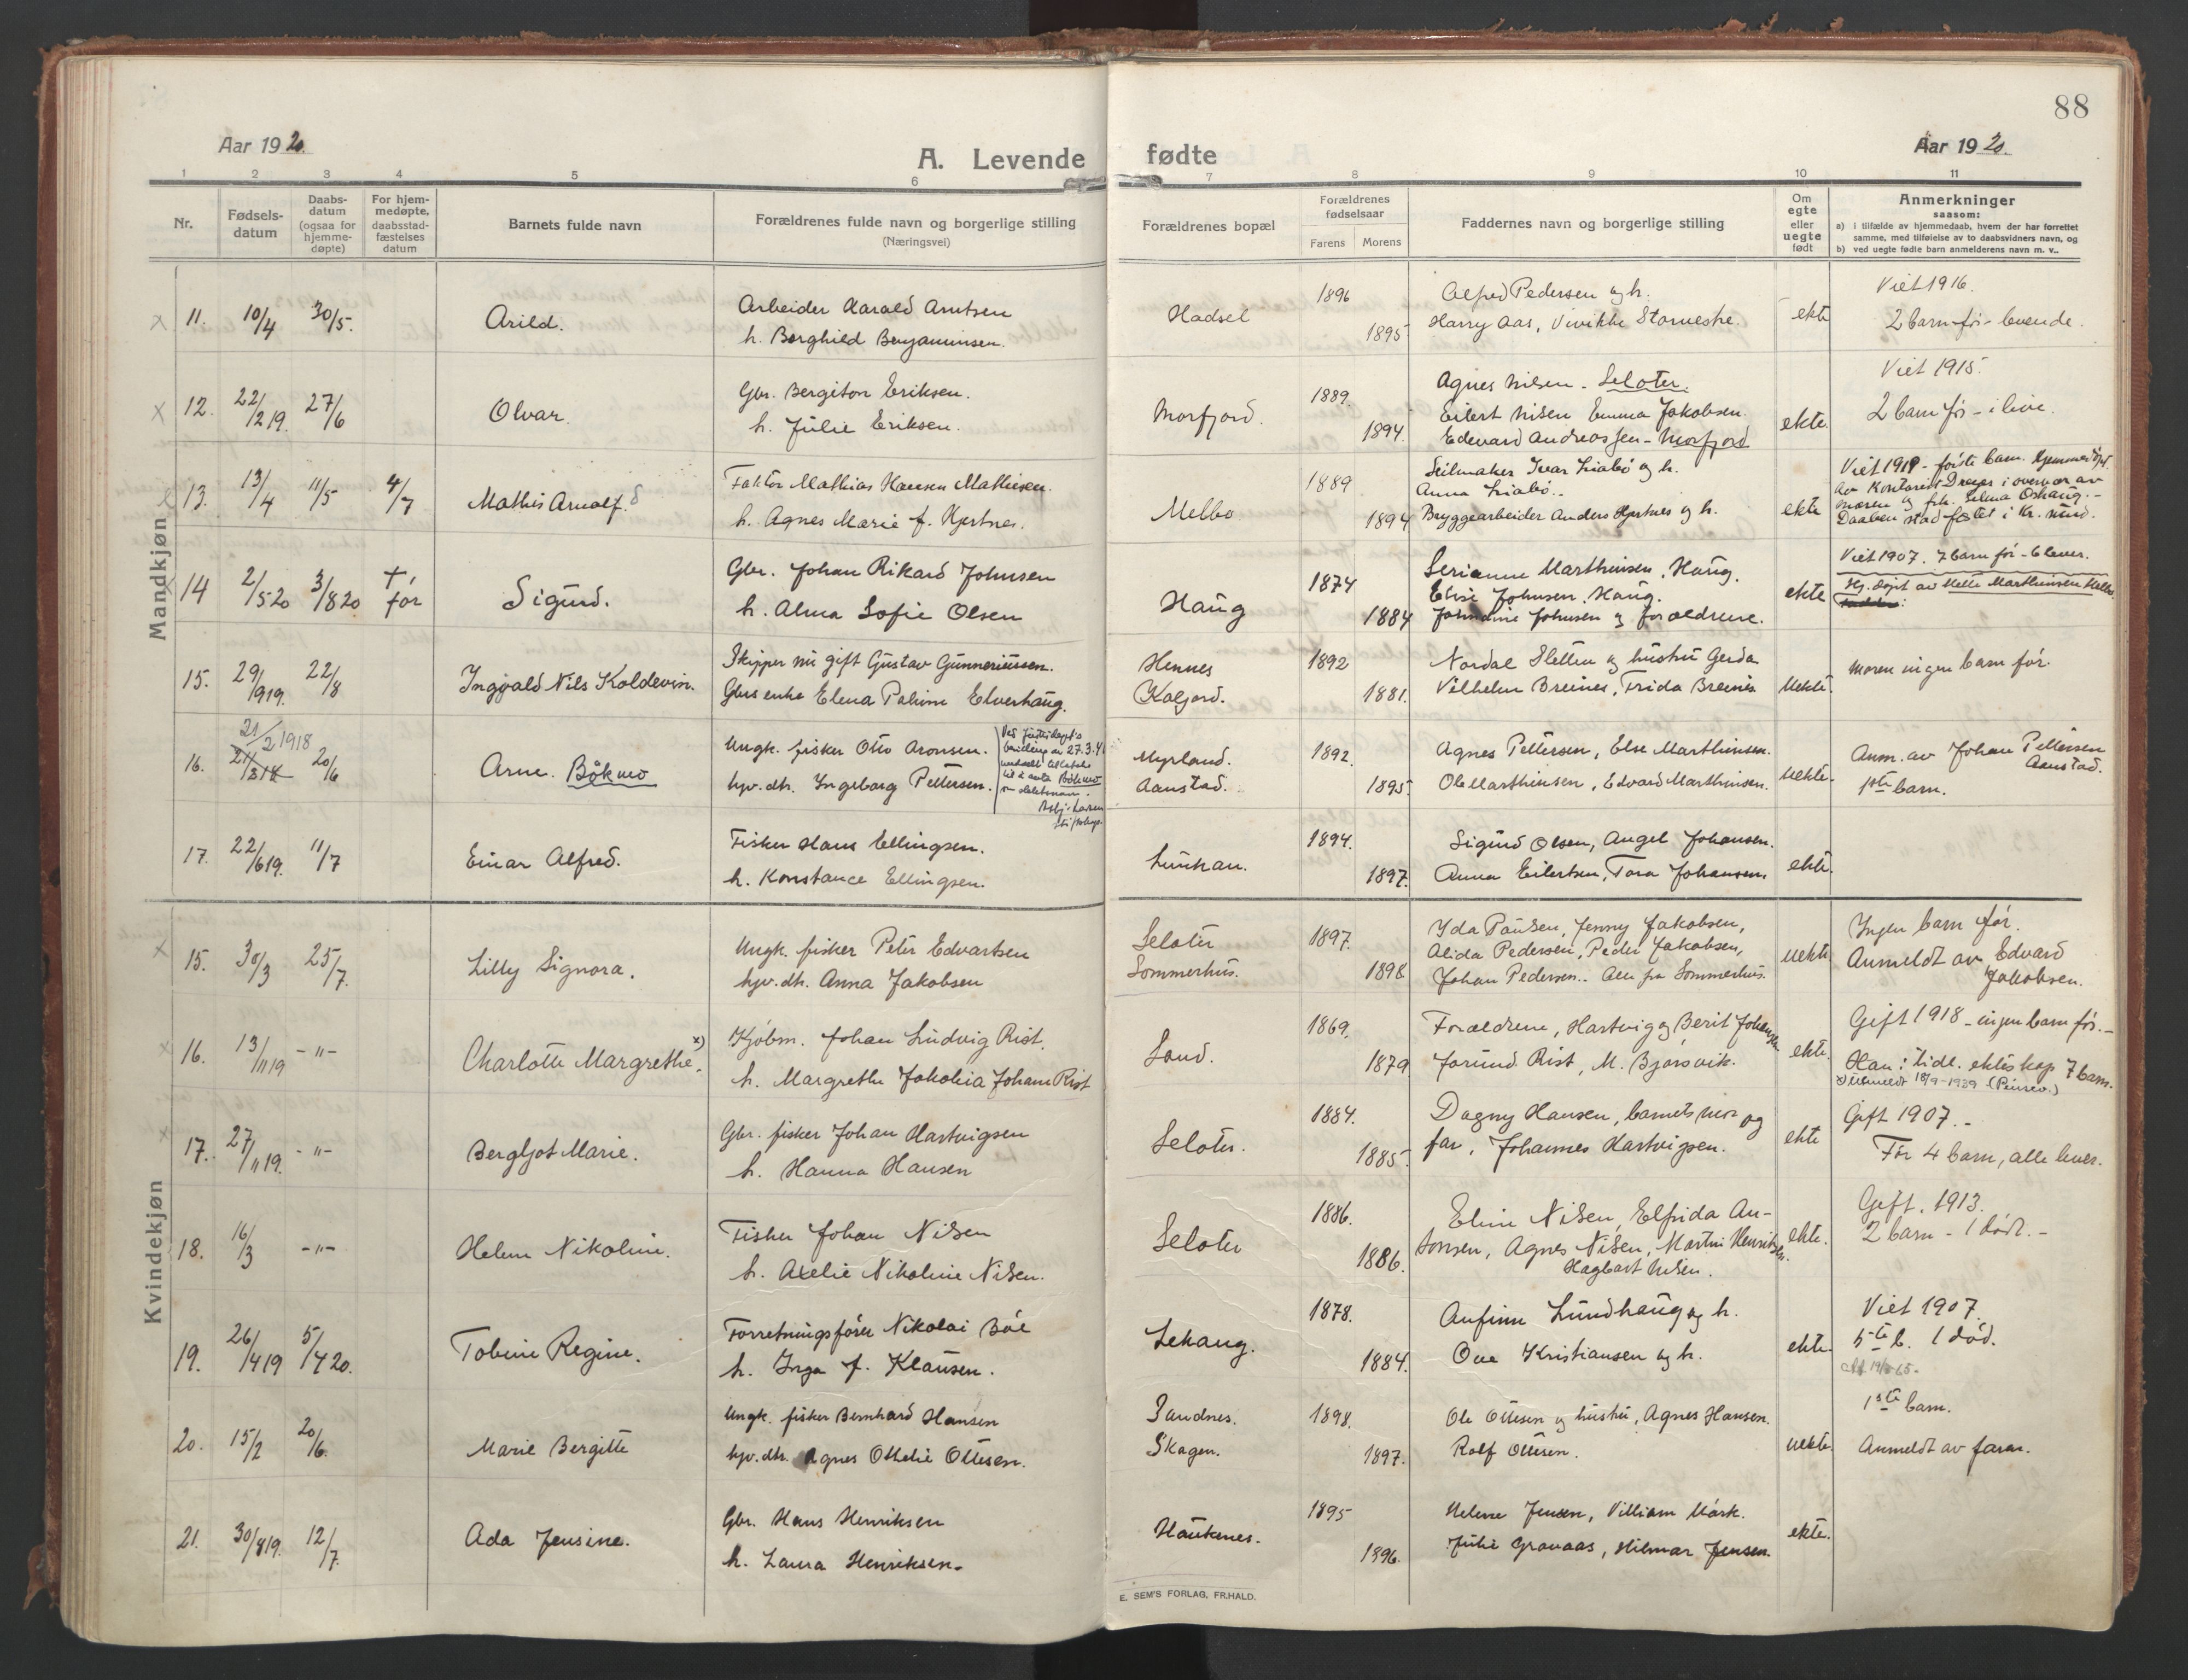 88
Aar 1920.
A. Levende fødte
Aar 1920.
1 2 3 4 5 6 7 8 9 10 11
Nr.
Fødsels-
datum
Daabs-
datum
(ogsaa for
hjemme-
døpte)
For hjem-
medøpte,
daabsstad-
fæstelses
datum
Barnets fulde navn
Forældrenes fulde navn og borgerlige stilling
(Næringsvei)
Forældrenes bopæl
Forældrenes
fødselsaar
Farens Morens
Faddernes navn og borgerlige stilling
Om
egte
eller
uegte
født
Anmerkninger
saasom:
a) i tilfælde av hjemmedaab, hvem der har forrettet
samme, med tilføielse av to daabsvidners navn, og
b) ved uegte fødte barn anmelderens navn m. v..
Mandkjøn
x 11. 10/4 30/5. Arild.
Arbeider Harald Arntsen
h. Borghild Benjaminsen.
Hadsel 1896 1895
Alfred Pedersen og h.
Harry Aas, Vivikke
ekte
Viet 1916.
2 barn før - levende.
x 12. 22/12 19. 27/6 Olvar.
Gbr. Bergiton Eriksen.
h. Julie Eriksen.
Morfjord. 1889. 1894.
Agnes Nilsen - Seloter.
Eilert Nilsen Emma Jakobsen
Edevard Andreassen - Morfjord
ekte.
Viet 1915.
2 barn før - i live.
13. 13/4 11/5 4/7 Mathis Arnolf.
Faktor Mathias Hansen Mathisen.
h. Agnes Marie f. Hjertnes.
Melbo 1889 1894
Seilmaker Ivar Liabø og h.
Anna Liabø..
Bryggearbeider Anders Hjertnes og h.
ekte
Viet 1919 - første barn. Hjemmedøpt
av Kontorist Dreyer i overvær av
moren og frk. Selma Oshaug. -
Daaben stadfæstet i Kr. sund.
14 2/5 20 3/8 20 † før Sigurd.
Gbr. Johan Rikard Johnsen
h. Alma Sofie Olsen
Haug 1874 1884
Serianne Marthinsen, Haug.
Elise Johnsen, Haug.
Johnsen og forældrene.
ekte
Viet 1907. 7 barn før - 6 lever.
Hj. døpt av Marthinsen
15. 29/9 19. 22/8 Ingvald Nils Koldevin.
Skipper nu gift Gustav Gunneriussen.
Gbrs enke Elena Paline Elverhaug.
Hennes
Kaljord.
1892 1881.
Nordal Sletten og hustru Gerda
Vilhelm Breines, Frida Breines
Uekte.
Moren ingen barn før.
16. 21/2 1918 20/6 Arne. Bökmo
Ungk. fisker Otto Aronsen.
hjv. dtr. Ingeborg Pettersen.
Myrland.
Aanstad.
1892. 1895.
Agnes Pettersen, Else Marthinsen.
Ole Marthinsen, Edvard Marthinsen.
Uekte.
Anm. av Johan Pettersen
Aanstad.
1ste barn.
17. 22/6 19. 11/7 Einar Alfred.
Fisker Hans Ellingsen.
h. Konstance Ellingsen.
Lunkan. 1894. 1897.
Sigurd Olsen, Angel Johansen.
Anna Eilertsen, Tora Johansen
ekte.
Kvindekjøn
x 15. 30/3 25/7. Lilly Signora.
Ungk. fisker Peter Edvartsen
hjv. dtr. Anna Jakobsen
Seloter
Sommerhus.
1897. 1898
Yda Paulsen, Jenny Jakobsen,
Alida Pedersen, Peder Jakobsen,
Johan Pedersen.. Alle fra Sommerhus.
uekte
Ingen barn før.
Anmeldt av Edvard
Jakobsen.
x 16. 13/11 19 - " - Charlotte Margrethe. x)
Kjöbm. Johan Ludvig Rist.
h. Margrethe Jakobia Johans Rist
Sand. 1869. 1879
Forældrene, Hartvig og Berit Johansen
Jorund Rist, M. Bjørsvik.
ekte.
Gift 1918 - ingen barn før. -
Han: tidl. ekteskap 7 barn.
x) Utmeldt 18/9-1939
x 17. 27/11 19. - " - Bergljot Marie.
Gbr. fisker Johan Hartvigsen
h. Hanna Hansen
Seloter. 1884. 1885.
Dagny Hansen, barnets mor og
far, Johannes Hartvigsen.
ekte
Gift 1907. -
Før 4 barn, alle lever.
18. 16/3 - " - Helene Nikoline.
Fisker Johan Nilsen
h. Axelie Nikoline Nilsen.
Seloter 1886. 1886.
Eline Nilsen, Elfrida An-
tonsen, Agnes Nilsen, Martin Henriksen.
Hagbart Nilsen.
ekte.
Gift. 1913.
2 barn - 1 dødt. -
19. 26/4 19 5/4 20. Tobine Regine.
Forretningsfører Nikolai Bøe
h. Inga f. Klausen.
Lekang. 1878. 1884.
Anfinn Lundhaug og h.
Ove Kristiansen og h.
ekte.
Viet 1907.
5te b. 1 død.
20. 15/2 20/6. Marie Bergitte
Ungk. fisker Bernhard Hansen
hjv. dtr. Agnes Othelie Ottesen.
Sandnes.
Skagen.
1898. 1897.
Ole Ottesen og hustru, Agnes Hansen.
Rolf Ottesen.
uekte.
1ste barn.
Anmeldt av faren.
21. 30/8 19. 12/7. Ada Jensine.
Gbr. Hans Henriksen
h. Laura Henriksen.
Haukenes. 1895 1896.
Helene Jensen, Villiam Mørk.
Julie Gravaas, Hilmar Jensen.
ekte.
E. SEM'S FORLAG, FR.HALD.